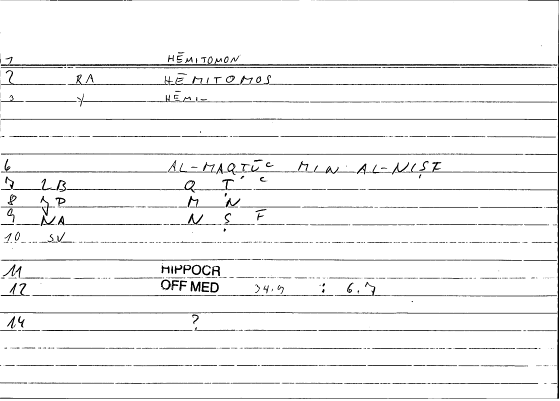 1 HĒMITOMON
2 RA HĒMITOMOS
3 Y HĒMI-
6 AL-MAQṬŪᶜ MIN AL-NIṢF
7 2B Q Ṭ ᶜ
8 M N
9 NA N Ṣ F
10 SV
11 HIPPOCR
12 OFF MED : 6.7
14 ?